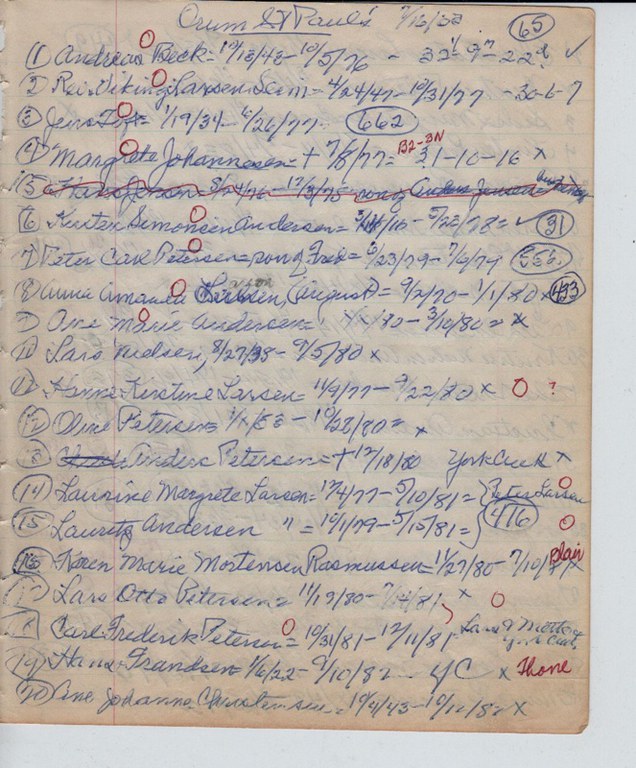 Orum St Paul's 7/16/38 65
① Andreas Beck = 12/13/43 - 10/5/76 - 32-9-22 ✓
2 Rei Viking Larsen Semi = 4/24/47 - 10/31/77 - 30-6-7
③ Jens = 1/19/34 - 6/26/77 662
④ Margrete Johannesen = + 7/8/77 = B2-3N 31-10-16 x
⑤ Hans Jensen = - 12/3/75 = son of Anders Jensen
⑥ Kirsten Simonsen Andersen = /16 - 5/28/78 = ✓ 31
⑦ Peter Carl Petersen = son of Fred = 6/23/79 - 7/4/79 556
⑧ Anna Amanda (August) = 9/2/70 - 1/1/80 x 433
⑨ Ane Marie Andersen = /80 - 3/10/80 = x
⑩ Lars Nielsen, 8/27/38 - 9/5/80 x
⑪ Hanne Kirstine Larsen = 11/9/77 - 9/22/80 x O ?
⑫ Oline Petersen = - 10/28/80 = x
⑬ Anders Petersen = + 12/18/80 York Creek x
⑭ Laurine Margrete Larsen = 12/4/77 - 5/10/81 = Peter Larsen
⑮ Lauritz Andersen " = 10/1/79 - 5/15/81 = 416
⑯ Karen Marie Mortensen Rasmussen = 1/27/80 - 7/10/ x Blair
⑰ Lars Otto Petersen = 11/19/80 - 7/14/81 x
⑱ Carl Frederik Petersen = 10/31/81 - 12/11/81 - Lars & Mette
⑲ Hans Frandsen = 1/6/22 - 9/10/82 - YC x Thone
⑳ Ane Johanne Christensen = 10/4/43 - 10/12/82 x